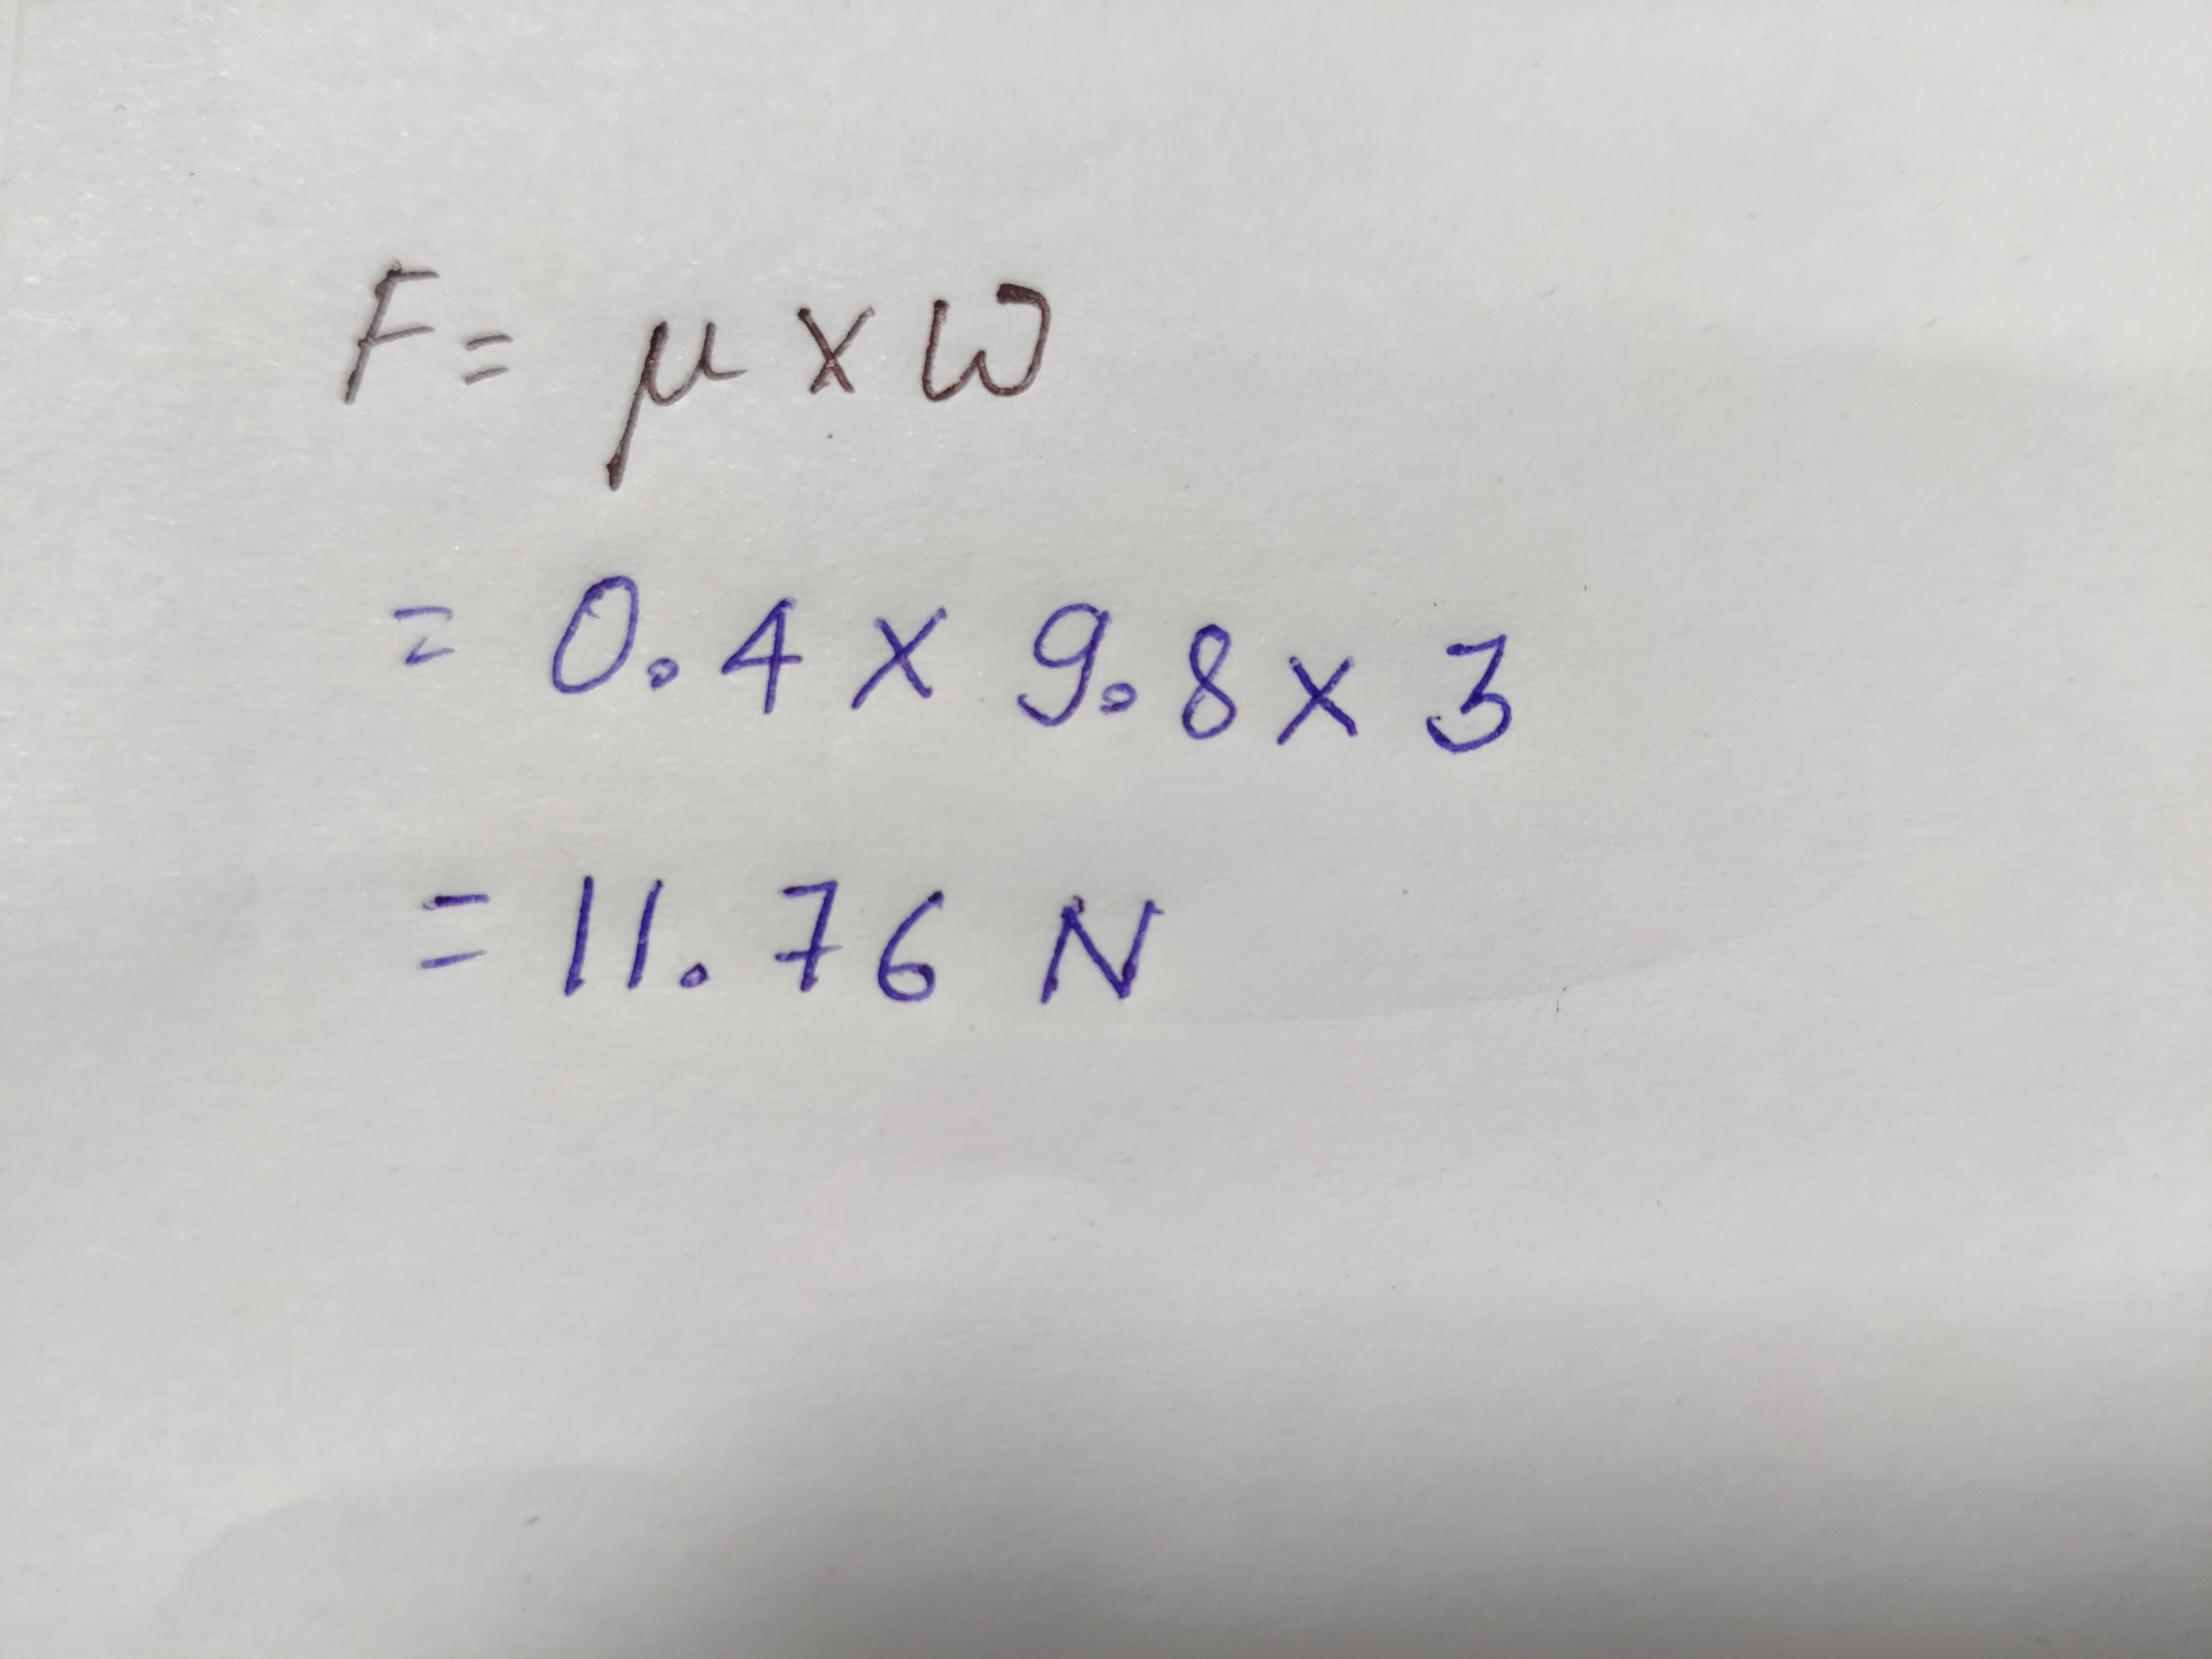 F = μ × W
= 0.4 × 9.8 × 3
= 11.76 N